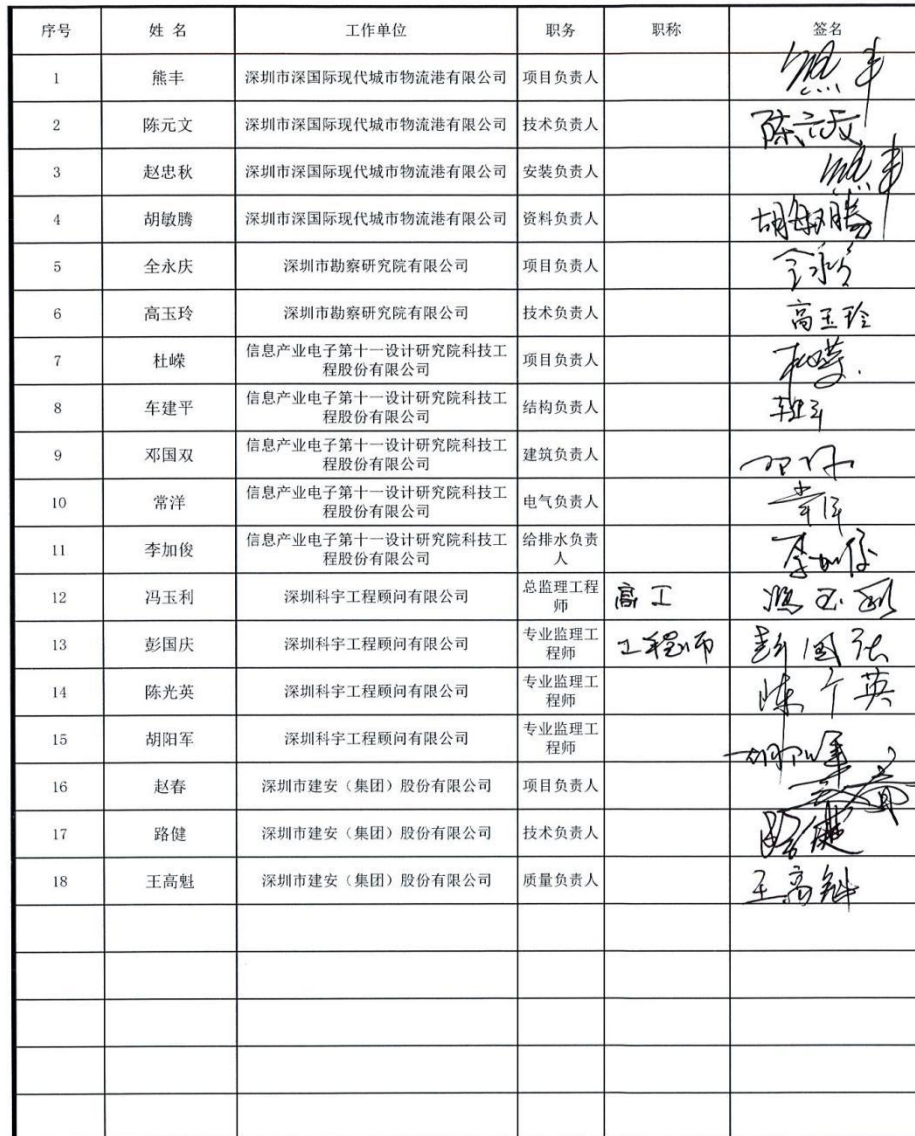 序号 姓 名 工作单位 职务 职称 签名
1 熊丰 深圳市深国际现代城市物流港有限公司 项目负责人 熊丰
2 陈元文 深圳市深国际现代城市物流港有限公司 技术负责人 陈元文
3 赵忠秋 深圳市深国际现代城市物流港有限公司 安装负责人 熊丰
4 胡敏腾 深圳市深国际现代城市物流港有限公司 资料负责人 胡敏腾
5 全永庆 深圳市勘察研究院有限公司 项目负责人 全永庆
6 高玉玲 深圳市勘察研究院有限公司 技术负责人 高玉玲
7 杜嵘 信息产业电子第十一设计研究院科技工
程股份有限公司 项目负责人
8 车建平 信息产业电子第十一设计研究院科技工
程股份有限公司 结构负责人
9 邓国双 信息产业电子第十一设计研究院科技工
程股份有限公司 建筑负责人
10 常洋 信息产业电子第十一设计研究院科技工
程股份有限公司 电气负责人 常洋
11 李加俊 信息产业电子第十一设计研究院科技工
程股份有限公司 给排水负责
人 李加俊
12 冯玉利 深圳科宇工程顾问有限公司 总监理工程
师 高工 冯玉利
13 彭国庆 深圳科宇工程顾问有限公司 专业监理工
程师 工程师 彭国庆
14 陈光英 深圳科宇工程顾问有限公司 专业监理工
程师 陈光英
15 胡阳军 深圳科宇工程顾问有限公司 专业监理工
程师 胡阳军
16 赵春 深圳市建安（集团）股份有限公司 项目负责人 赵春
17 路健 深圳市建安（集团）股份有限公司 技术负责人 路健
18 王高魁 深圳市建安（集团）股份有限公司 质量负责人 王高魁